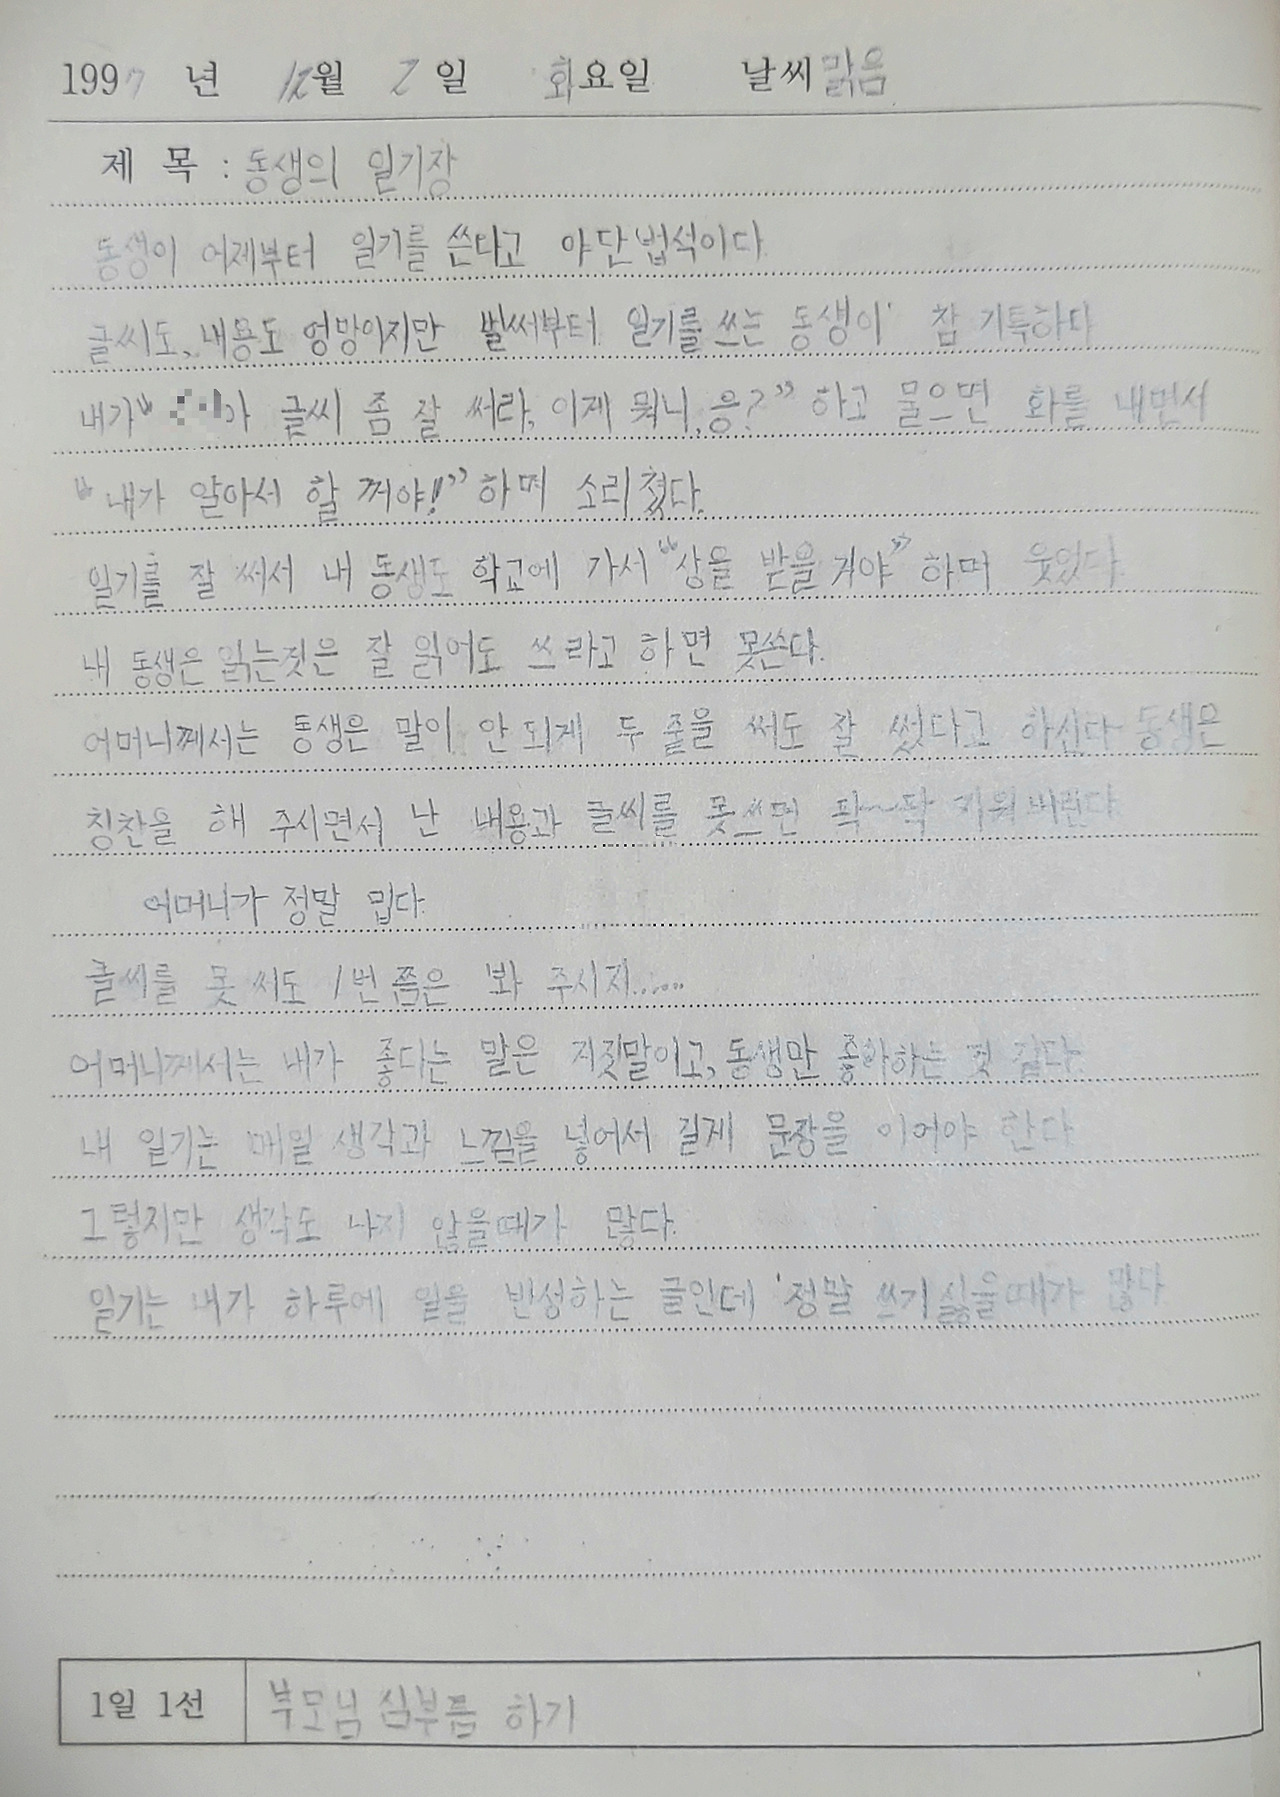 1997 년 12월 2 일 화요일 날씨 맑음
제 목 : 동생의 일기장
동생이 어제부터 일기를 쓴다고 야단법석이다
글씨도, 내용도 엉망이지만 벌써부터 일기를 쓰는 동생이 참 기특하다
내가 " 가 글씨 좀 잘 써라, 이게 뭐니, 응?" 하고 물으면 화를 내면서
"내가 알아서 할 꺼야!" 하며 소리쳤다.
일기를 잘 써서 내 동생도 학교에 가서 "상을 받을 거야" 하며 웃었다.
내 동생은 읽는것은 잘 읽어도 쓰라고 하면 못쓴다.
어머니께서는 동생은 말이 안 되게 두 줄을 써도 잘 썼다고 하신다 동생은
칭찬을 해 주시면서 난 내용과 글씨를 못쓰면 팍~팍 지워버린다
어머니가 정말 밉다.
글씨를 못 써도 1번 쯤은 봐 주시지......
어머니께서는 내가 좋다는 말은 거짓말이고, 동생만 좋아하는 것 같다.
내 일기는 매일 생각과 느낌을 넣어서 길게 문장을 이어야 한다
그렇지만 생각도 나지 않을때가 많다.
일기는 내가 하루에 일을 반성하는 글인데 정말 쓰기 싫을때가 많다
1일 1선 부모님 심부름 하기